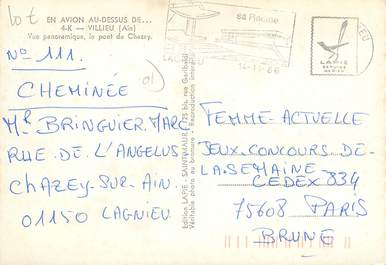 lot
EN AVION AU-DESSUS DE...
4-K — VILLIEU (Ain)
Vue panoramique, le pont de Chazey.
N° 111.
CHEMINÉE
Mr BRINGUIER. MARC
RUE. DE. L'ANGELUS
CHAZEY-SUR-AIN.
01150 LAGNIEU
Edition LAPIE - SAINT-MAUR
Véritable photo au bromure - Reproduction interdite
sa Piscine
LAPIE
FEMME-ACTUELLE
JEUX-CONCOURS-DE-
LA-SEMAINE
CEDEX 834
75608 PARIS
BRUNE